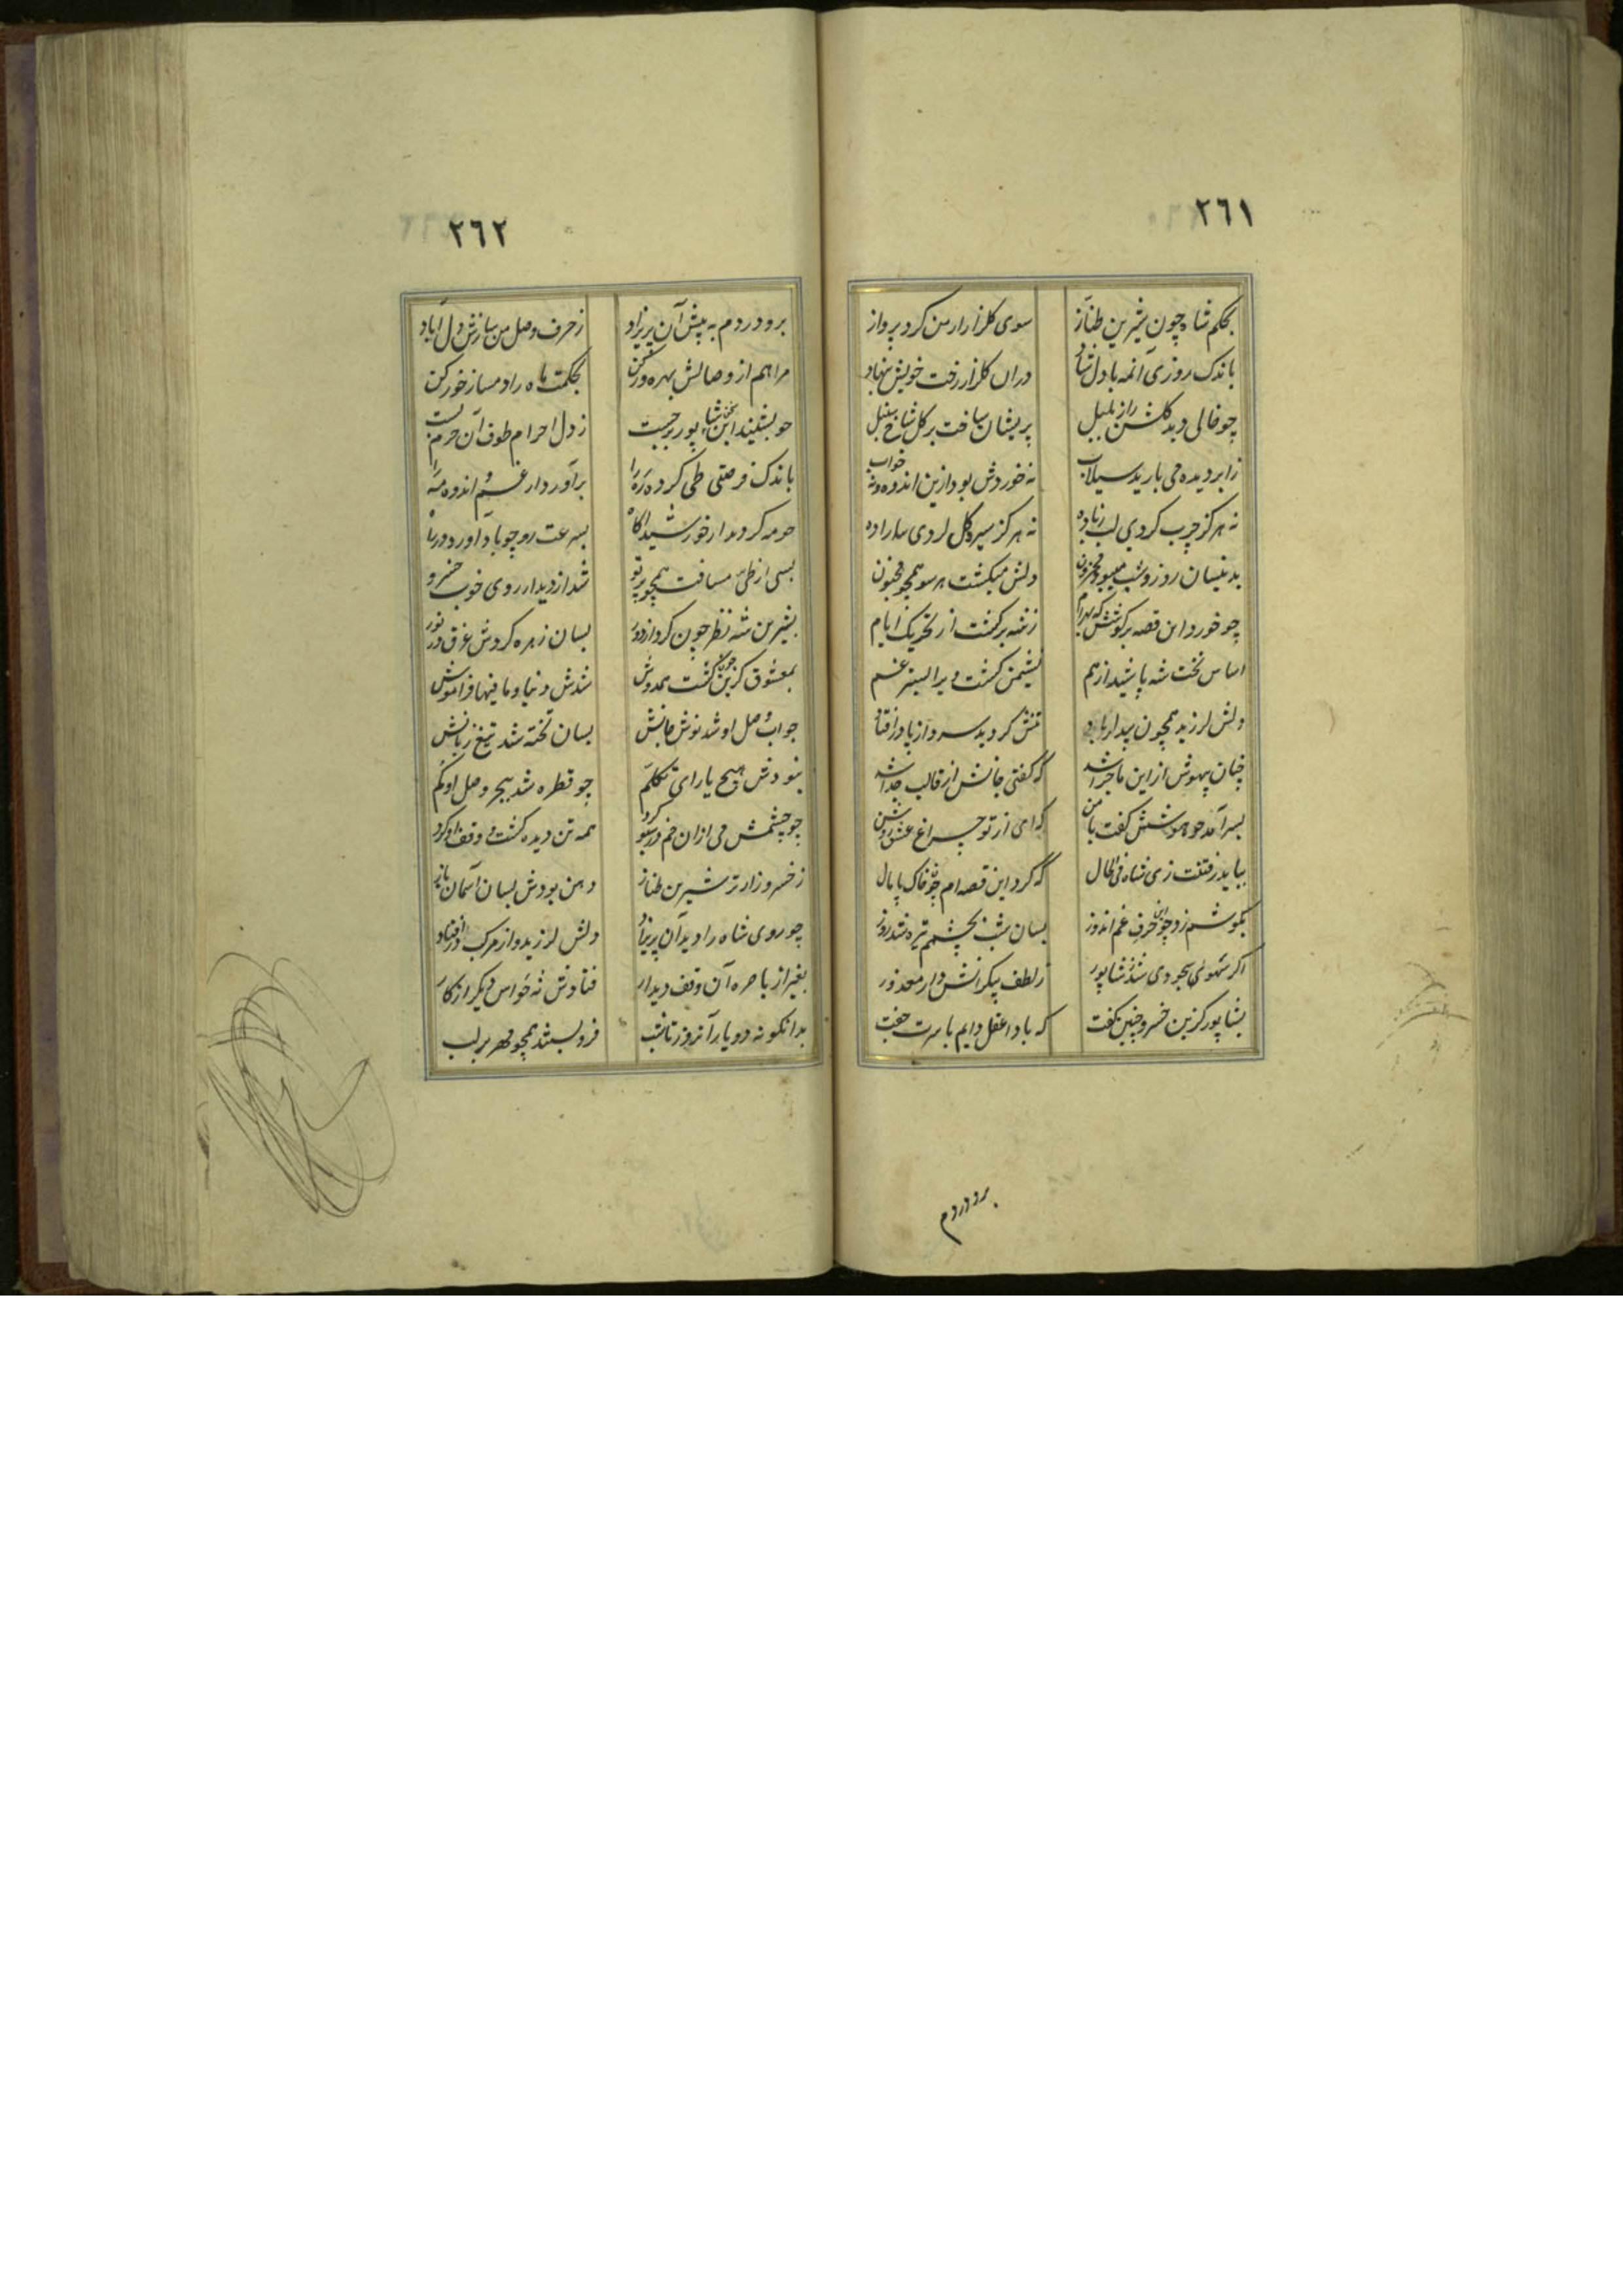 ٢٦١
بحکم شاه چون شیرین طناز سوی کلزار ارمن کرد پرواز
باندک روزی آنمه با دل شاد دران کلزار رخت خویش بنهاد
چو خالی دید کلشن را ز بلبل پریشان ساخت بر کل شاخ سنبل
ز ابر دیده می بارید سیلاب نه خوردش بود ازین اندوه و نه خواب
نه هرکز چرب کردی لب ز باده نه هرکز سیر کل کردی
بدینسان روز و شب میبود محزون دلش میکشت هر سو همچو مجنون
چو خورد این قصه بر کوشش که بهرام ز فتنه برکشت از تحریک ایام
اساس تخت شه پاشید از هم نشیمن کشت ویرا بستر غم
دلش لرزید همچون بید از باد تنش کردید سرد از پا در افتاد
چنان بیهوش از این ماجرا شد که کفتی جانش از قالب جدا شد
بسر آمد چو هوشش کفت با من که ای از تو چراغ عشق روشن
بباید رفتنت زی شاه فی الحال که کرد این قصه ام چون خاک پامال
بکوشم زد چو این حرف غم اندوز بسان شب بچشمم تیره شد روز
اکر سهوی بجودی شد ز شاپور ز لطف بیکرانش دار معذور
بشاپور کزین خسرو چنین کفت که بادا عقل دایم با سرت جفت
برو در دم
٢٦٢
برو در دم به پیش آن پریزاد ز حرف وصل من سازش دل آباد
مرا هم از وصالش بهره ور کن بحکمت ماه را دمساز خور کن
چو بشنید این سخن شاپور برجست ز دل احرام طوف آن حرم بست
باندک فرصتی طی کرد ره را برآورد از غم و اندوه مه را
چو مه کردید از خورشید آکاه بسرعت رو چو باد آورد در راه
بسی از طی مسافت همچو پرتو شد از دیدار روی خوب خسرو
بشیرین شه نظر چون کرد از دور بسان زهره کردش غرق در نور
بمعشوق کزین چون کشت همدوش شدش دنیا و ما فیها فراموش
جواب وصل او شد نوش جانش بسان تخته شد تیغ زبانش
نبودش هیچ یارای تکلم چو قطره شد ببحر وصل او کم
چو چشمش می ازان خم در سبو کرد همه تن دیده کشت و وقف او کرد
ز خسرو زارتر شیرین طناز دهن بودش بسان آسمان باز
چو روی شاه را دید آن پریزاد دلش لرزید و از مرکب در افتاد
بغیر از باصره آن وقف دیدار فتادش نه حواس دیکر از کار
بدانکونه دو یار آنروز تا شب فرو بستند همچو مهر بر لب